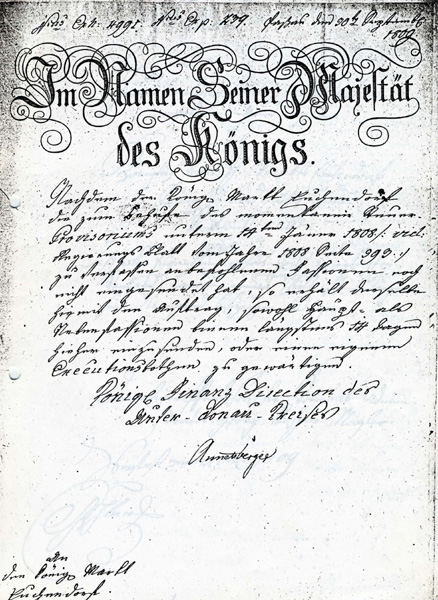 Num: Exh: 4991. Num Exp. 839. Passau den 30t. Septembr
1809.
Im Namen Seiner Majestät
des Königs.
Nachdem der König. Markt Puchendorf
die zum Behufe des Steuer-
Provisoriums unterm 13ten Jänner 1808 /: vid:
Regierungs Blatt vom Jahre 1808 Seite 393 :/
zu verfassen anbefohlenen Fassionen noch
nicht eingesendet hat, so erhält derselbe
hiemit den Auftrag, sowohl Haupt- als
Nebenfassionen binnen längstens 14 Tagen
hieher einzusenden, oder einen eigenen
Executionsbothen zu gewärtigen.
Königl. Finanz Direction des
Unter-Donau-Kreises
An
den König. Markt
Puchendorf.